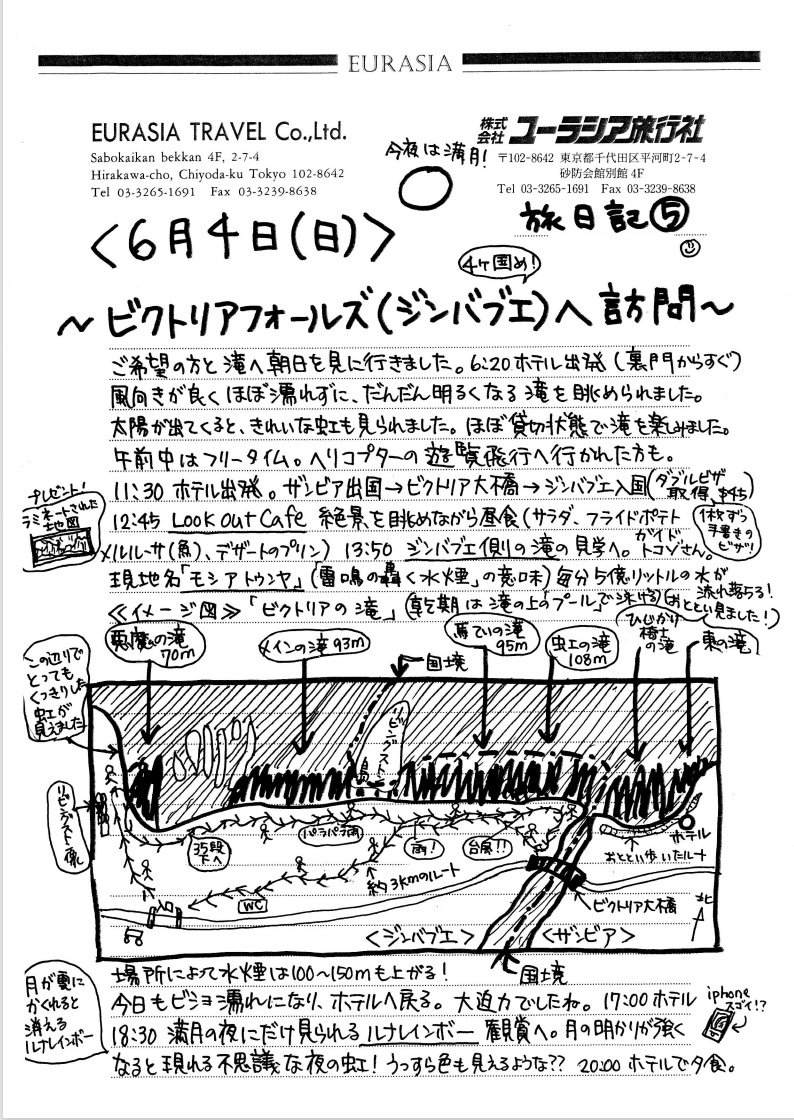 EURASIA
EURASIA TRAVEL Co.,Ltd.
Sabokaikan bekkan 4F, 2-7-4
Hirakawa-cho, Chiyoda-ku Tokyo 102-8642
Tel 03-3265-1691 Fax 03-3239-8638
今夜は満月!
株式会社 ユーラシア旅行社
〒102-8642 東京都千代田区平河町2-7-4
砂防会館別館 4F
Tel 03-3265-1691 Fax 03-3239-8638
旅日記⑤
<6月4日(日)>
4ヶ国め!
~ビクトリアフォールズ(ジンバブエ)へ訪問~
ご希望の方と滝へ朝日を見に行きました。6:20ホテル出発(裏門からすぐ)
風向きが良くほぼ濡れずに、だんだん明るくなる滝を眺められました。
太陽が出てくると、きれいな虹も見られました。ほぼ貸切状態で滝を楽しみました。
午前中はフリータイム。ヘリコプターの遊覧飛行へ行かれた方も。
11:30 ホテル出発。ザンビア出国→ビクトリア大橋→ジンバブエ入国(ダブルビザ取得、$45)
プレゼント!
ラミネートされた
地図
12:45 Look out Cafe 絶景を眺めながら昼食(サラダ、フライドポテト
1枚ずつ
手書きの
ビザ!
メルルーサ(魚)、デザートのプリン) 13:50 ジンバブエ側の滝の見学へ。ガイド トコゾさん。
現地名「モシアトゥンヤ」(雷鳴の轟く水煙」の意味)毎分5億リットルの水が
流れ落ちる!
≪イメージ図≫「ビクトリアの滝」(乾期は滝の上の「プール」で泳げる)(おととい見ました!)
悪魔の滝
70m
メインの滝 93m
国境
馬ていの滝
95m
虹の滝
108m
ひじかけ
椅子
の滝
東の滝
この辺りで
とっても
くっきりした
虹が
見えました
リビングストン島
リビングストン像
35段
下へ
パラパラ雨
雨!
台風!!
ホテル
おととい歩いたルート
約3kmのルート
WC
入口
ビクトリア大橋
北
<ジンバブエ>
<ザンビア>
国境
場所によって水煙は100~150mも上がる!
月が雲に
かくれると
消える
ルナレインボー
今日もビショ濡れになり、ホテルへ戻る。大迫力でしたね。17:00ホテル
iphone
スゴイ!?
18:30 満月の夜にだけ見られるルナレインボー観賞へ。月の明かりが強く
なると現れる不思議な夜の虹!うっすら色も見えるような?? 20:00 ホテルで夕食。